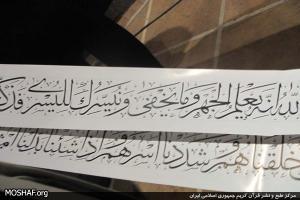 الله إنه يعلم الجهر وما يخفى ونيسرك لليسرى فذكر
خلقناهم وشددنا أسرهم وإذا شئنا بدلنا
MOSHAF.org
مرکز طبع و نشر قرآن کریم جمهوری اسلامی ایران